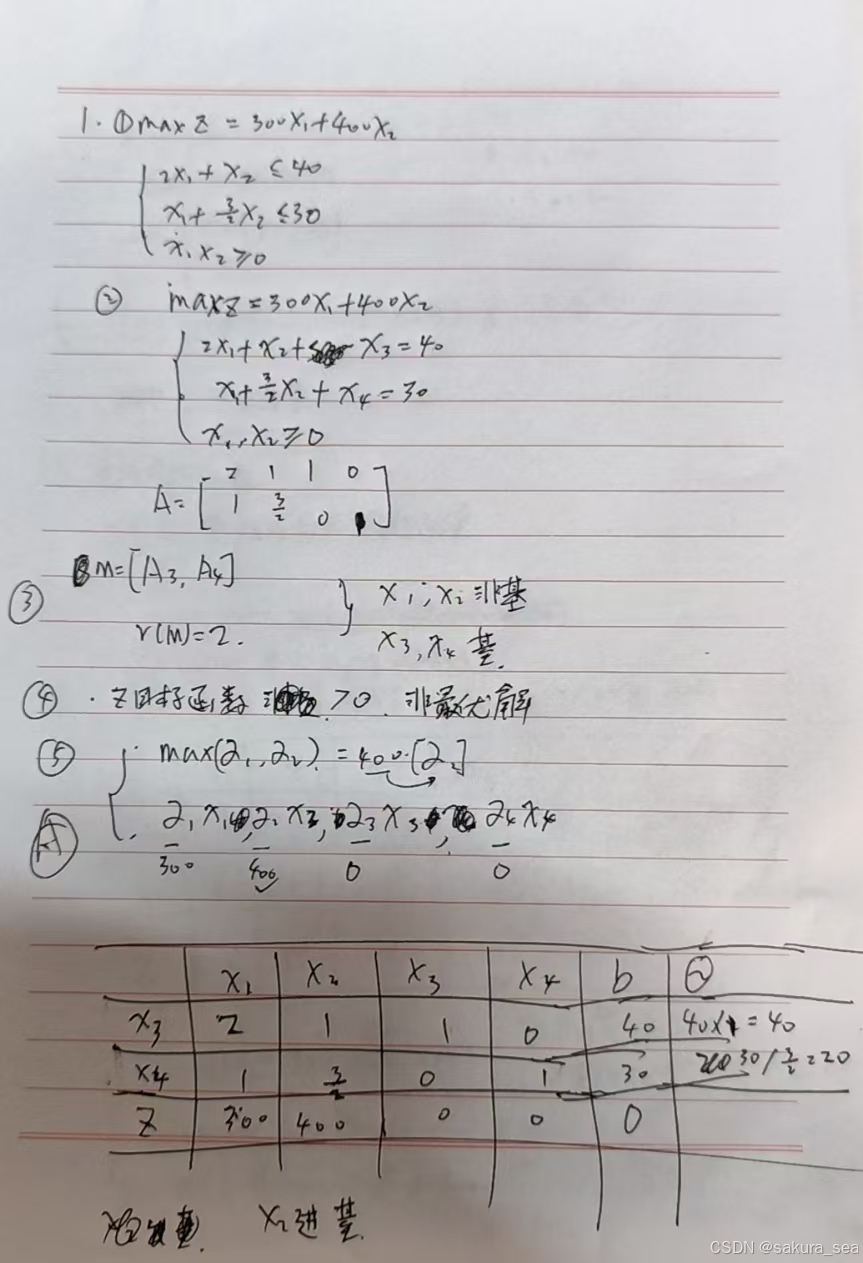 1. ① max Z = 300x₁+400x₂
2x₁ + x₂ ≤ 40
x₁ + 3/2 x₂ ≤ 30
x₁ x₂ ≥ 0
② max Z = 300x₁+400x₂
2x₁ + x₂ + x₃ = 40
x₁ + 3/2 x₂ + x₄ = 30
x₁, x₂ ≥ 0
A = [
2 1 1 0
1 3/2 0
]
③ M = [A₃, A₄]
r(M) = 2.
x₁, x₂ 非基
x₃, x₄ 基.
④ . Z目标函数 >0. 非最优解
⑤ max(2₁, 2₂) = 400 [2₂]
2₁x₁, 2₂x₃, 2₃x₃, 2₄x₄
300 400 0 0
x₁ x₂ x₃ x₄ b Θ
x₃ 2 1 1 0 40 40/1 = 40
x₄ 1 3/2 0 1 30 30/ 3/2 = 20
Z 300 400 0 0 0
x₂进基.
CSDN @sakura_sea